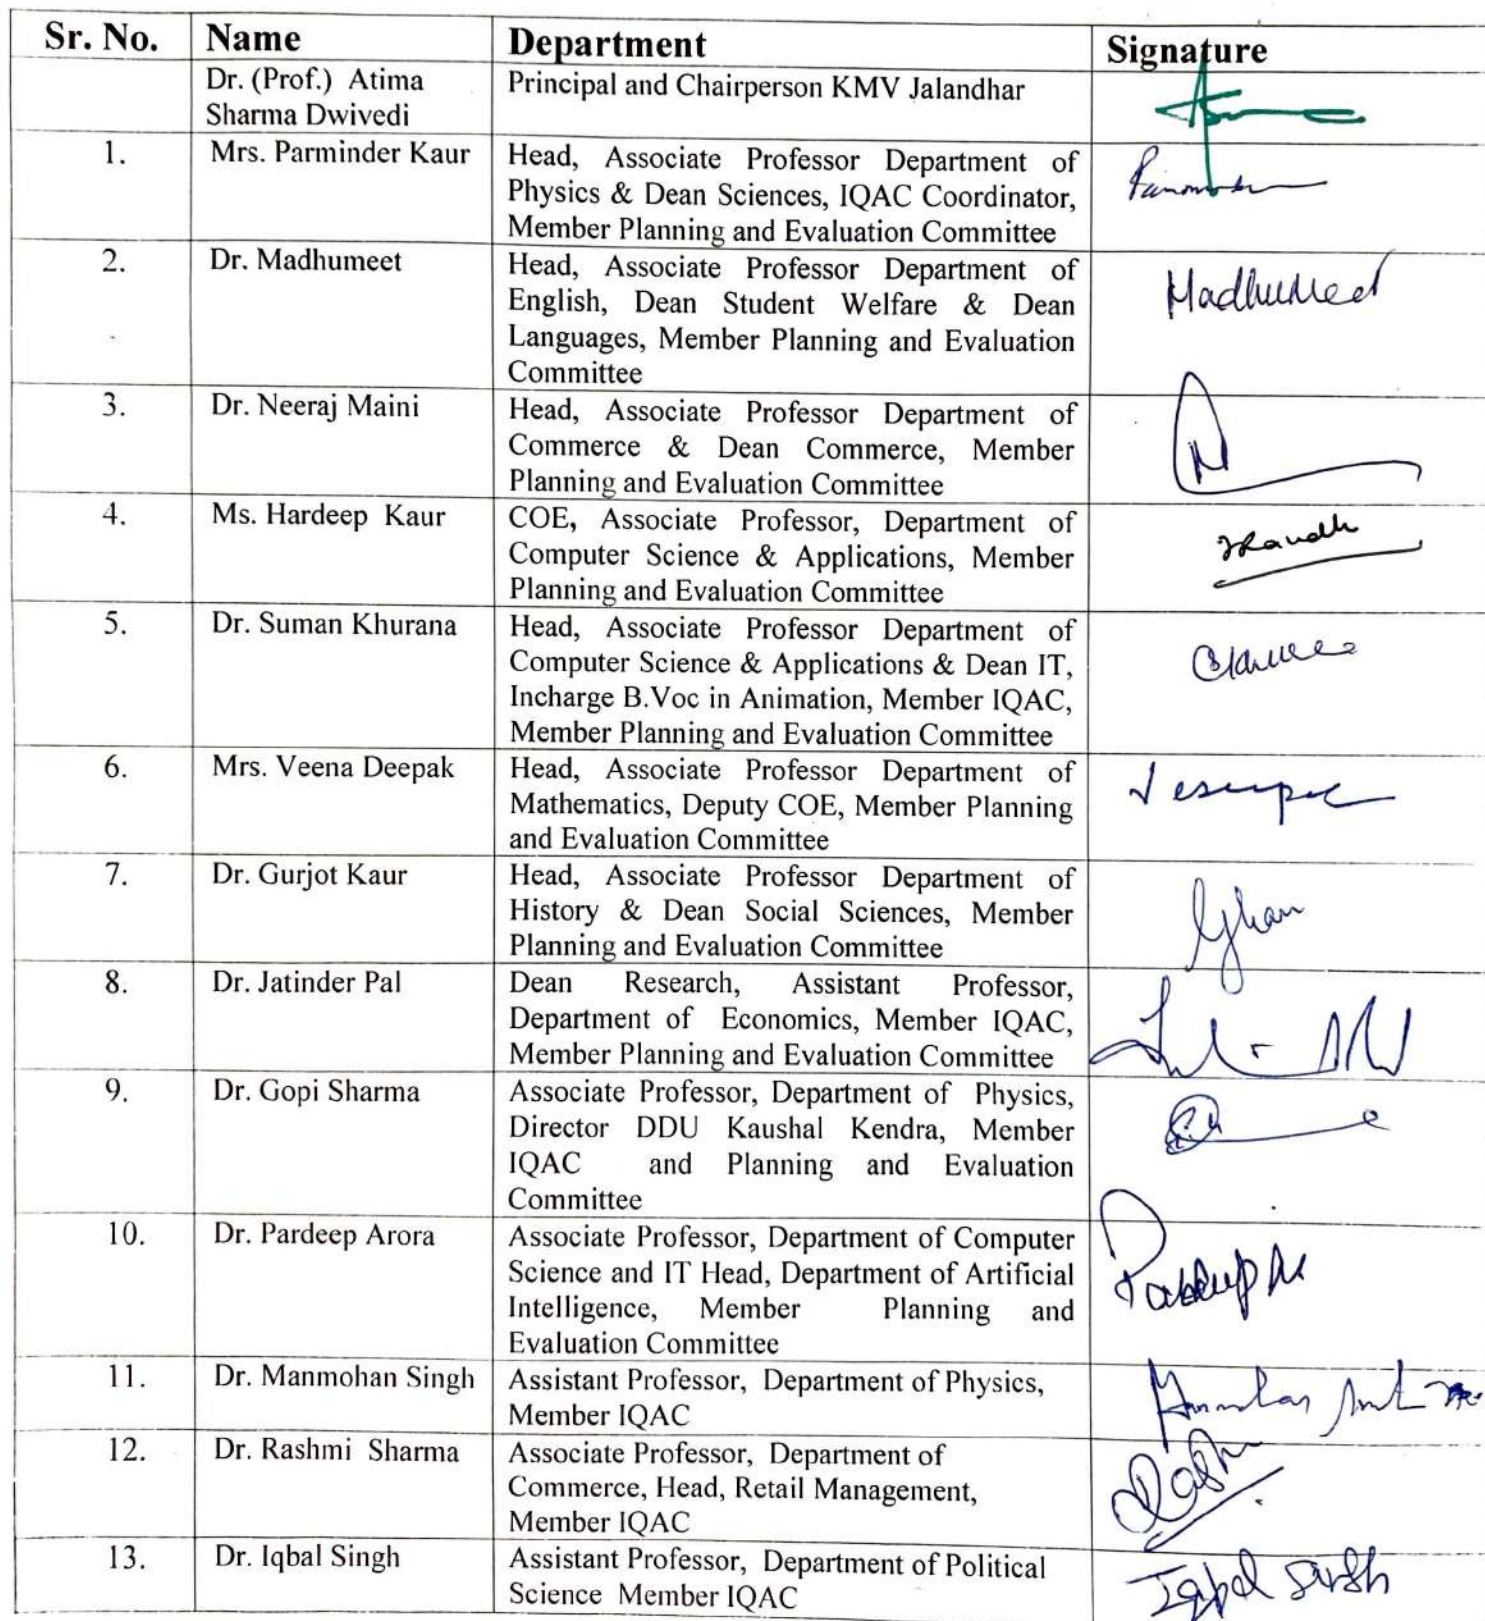 Sr. No. Name Department Signature
Dr. (Prof.) Atima Principal and Chairperson KMV Jalandhar
Sharma Dwivedi
1. Mrs. Parminder Kaur Head, Associate Professor Department of
Physics & Dean Sciences, IQAC Coordinator,
Member Planning and Evaluation Committee
2. Dr. Madhumeet Head, Associate Professor Department of Madhumeet
English, Dean Student Welfare & Dean
Languages, Member Planning and Evaluation
Committee
3. Dr. Neeraj Maini Head, Associate Professor Department of
Commerce & Dean Commerce, Member
Planning and Evaluation Committee
4. Ms. Hardeep Kaur COE, Associate Professor, Department of
Computer Science & Applications, Member
Planning and Evaluation Committee
5. Dr. Suman Khurana Head, Associate Professor Department of
Computer Science & Applications & Dean IT,
Incharge B.Voc in Animation, Member IQAC,
Member Planning and Evaluation Committee
6. Mrs. Veena Deepak Head, Associate Professor Department of
Mathematics, Deputy COE, Member Planning
and Evaluation Committee
7. Dr. Gurjot Kaur Head, Associate Professor Department of
History & Dean Social Sciences, Member
Planning and Evaluation Committee
8. Dr. Jatinder Pal Dean Research, Assistant Professor,
Department of Economics, Member IQAC,
Member Planning and Evaluation Committee
9. Dr. Gopi Sharma Associate Professor, Department of Physics,
Director DDU Kaushal Kendra, Member
IQAC and Planning and Evaluation
Committee
10. Dr. Pardeep Arora Associate Professor, Department of Computer
Science and IT Head, Department of Artificial
Intelligence, Member Planning and
Evaluation Committee
11. Dr. Manmohan Singh Assistant Professor, Department of Physics,
Member IQAC
12. Dr. Rashmi Sharma Associate Professor, Department of
Commerce, Head, Retail Management,
Member IQAC
13. Dr. Iqbal Singh Assistant Professor, Department of Political Iqbal Singh
Science Member IQAC